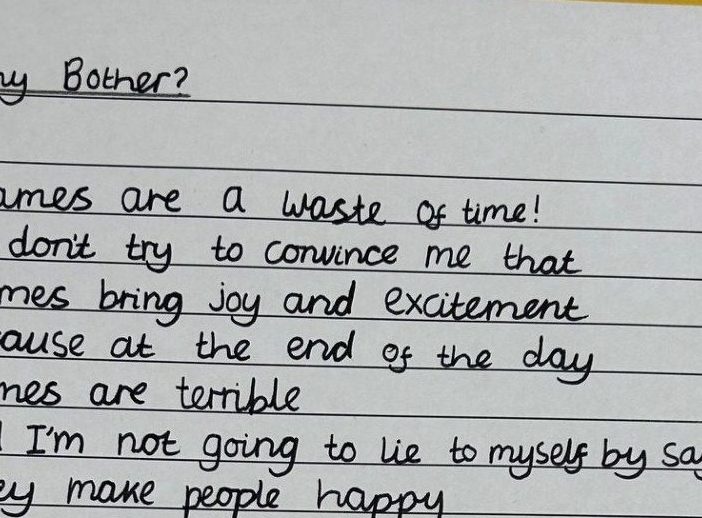 ny Bother?
ames are a waste of time!
don't try to convince me that
mes bring joy and excitement
ause at the end of the day
mes are terrible
I'm not going to lie to myself by say
ey make people happy